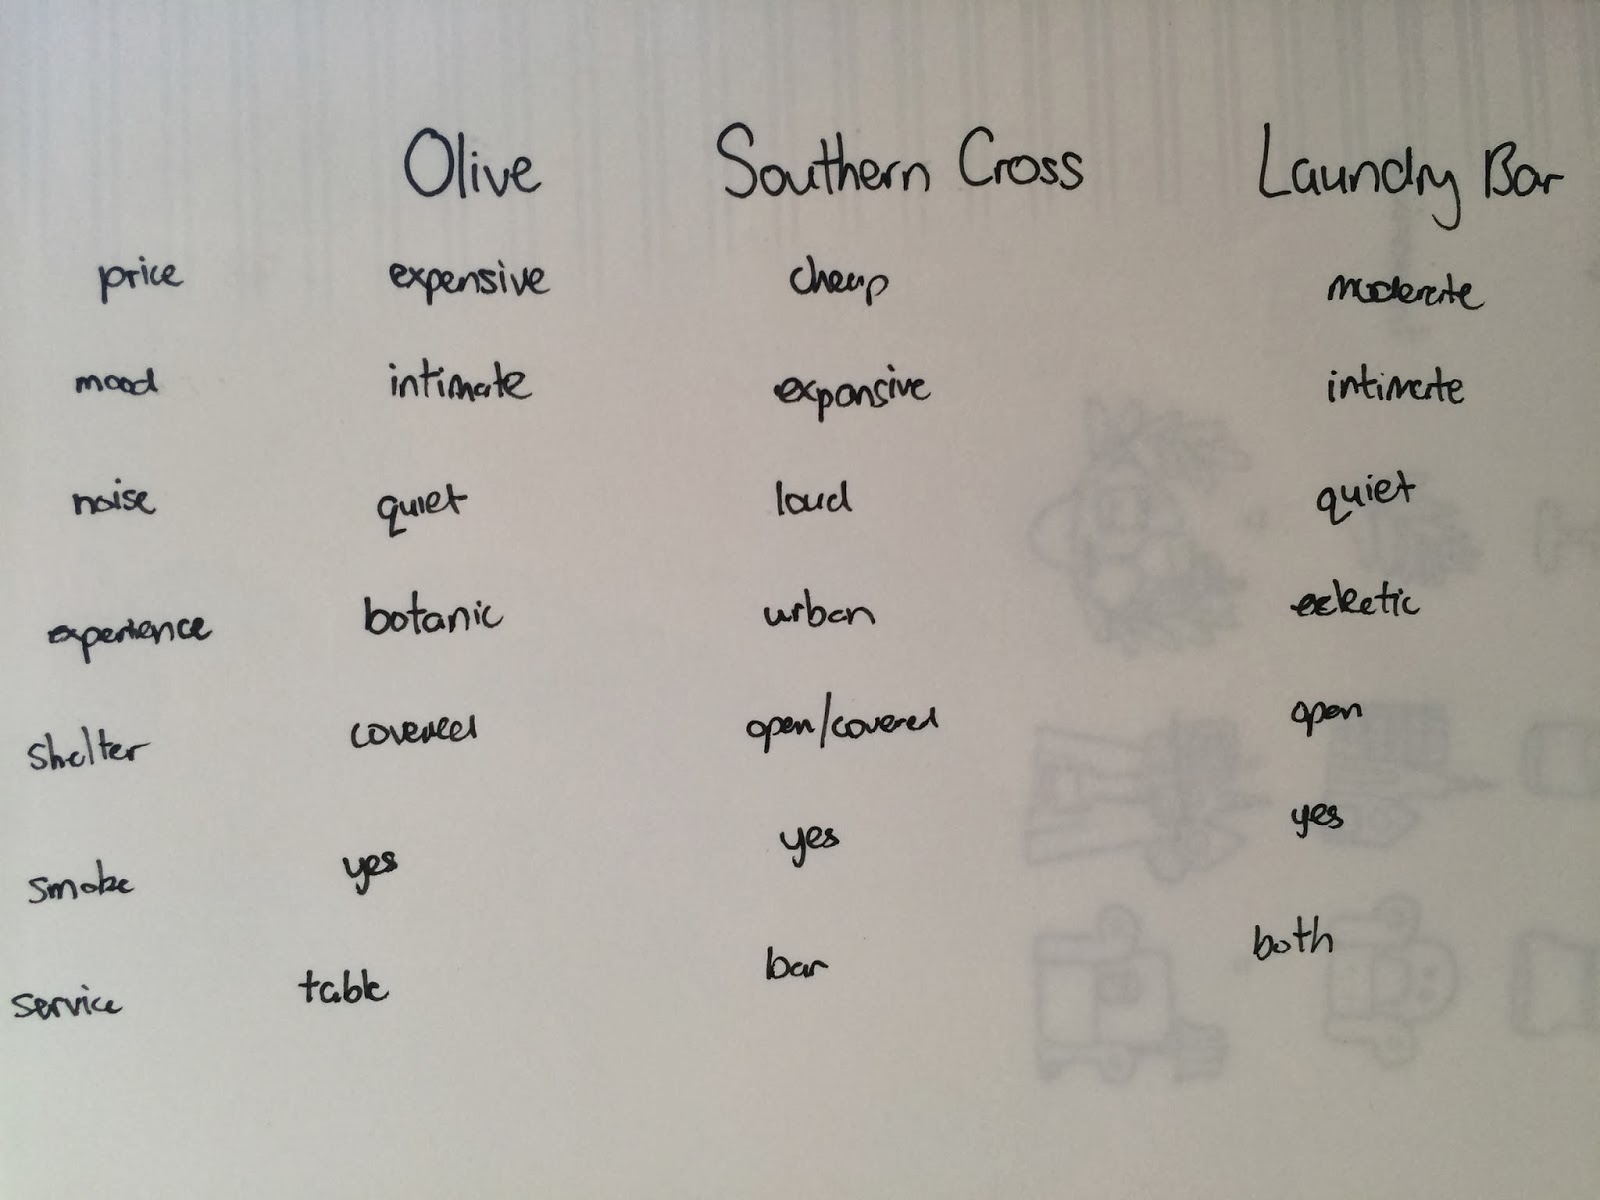 Olive Southern Cross Laundry Bar
price expensive cheap moderate
mood intimate expansive intimate
noise quiet loud quiet
experience botanic urban eckletic
shelter covered open/covered open
smoke yes yes yes
service table bar both